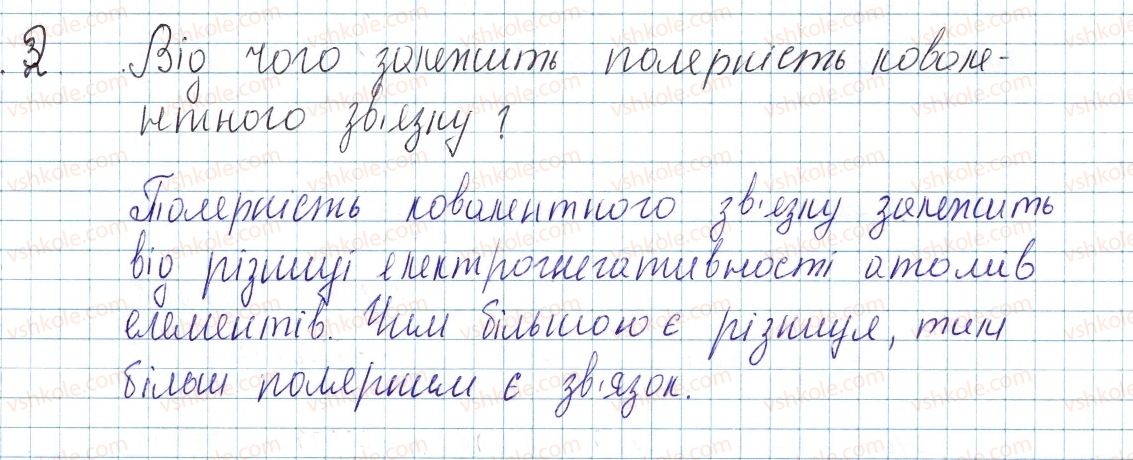 2. Від чого залежить полярність ковале-
нтного зв'язку?
Полярність ковалентного зв'язку залежить
від різниці електрогнегативності атомив
елементів. Чим більшою є різниця, тим
більш полярним є зв'язок.